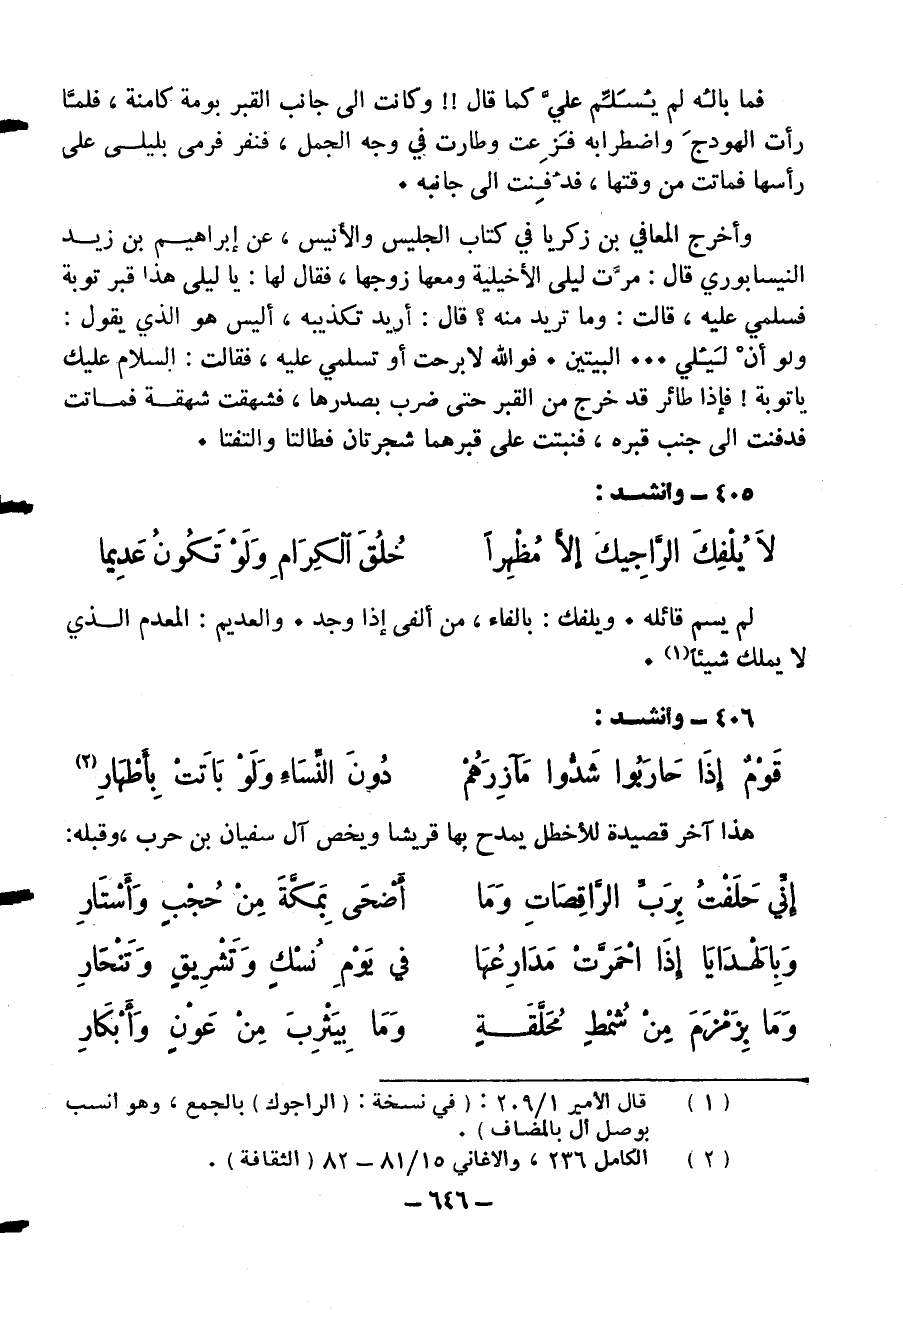 فما بالـُه لم يُسَلـّم عليَّ كما قال !! وكانت الى جانب القبر بومة كامنة ، فلمـَّا
رأت الهودجَ واضطرابه فـَزِعت وطارت في وجه الجمل ، فنفر فرمى بليلى على
رأسها فماتت من وقتها ، فدُفِنت الى جانبه ٠
وأخرج المعافي بن زكريا في كتاب الجليس والأنيس ، عن إبراهيم بن زيد
النيسابوري قال : مرَّت ليلى الأخيلية ومعها زوجها ، فقال لها : يا ليلى هذا قبر توبة
فسلمي عليه ، قالت : وما تريد منه ؟ قال : أريد تكذيبه ، أليس هو الذي يقول :
ولو أنْ لَيـْلي ٠٠٠ البيتين ٠ فوالله لا برحت أو تسلمي عليه ، فقالت : السلام عليك
ياتوبة ! فإذا طائر قد خرج من القبر حتى ضرب بصدرها ، فشهقت شهقة فماتت
فدفنت الى جنب قبره ، فنبتت على قبرهما شجرتان فطالتا والتفتا ٠
٤٠٥ – وانشد :
لاَ يُلْفِكَ الرَّاجِيكَ إلاَّ مُظْهِراً خُلُقَ الْكِرَامِ وَلَوْ تَكُونُ عَدِيمَا
لم يسم قائله ٠ ويلفك : بالفاء ، من ألفى إذا وجد ٠ والعديم : المعدم الذي
لا يملك شيئا(١) ٠
٤٠٦ – وانشد :
قَوْمٌ إِذَا حَارَبُوا شَدُّوا مَآزِرَهُمْ دُونَ النِّسَاءِ وَلَوْ بَاتَتْ بِأَطْهَارِ(٢)
هذا آخر قصيدة للأخطل يمدح بها قريشا ويخص آل سفيان بن حرب ،وقبله:
إِنِّي حَلَفْتُ بِرَبِّ الرَّاقِصَاتِ وَمَا أَضْحَى بِمَكَّةَ مِنْ حُجْبٍ وَأَسْتَارِ
وَبِالْهَدَايَا إِذَا احْمَرَّتْ مَدَارِعُهَا في يَوْمِ نُسْكٍ وَتَشْرِيقٍ وَتَنْحَارِ
وَمَا بِزَمْزَمَ مِنْ شُمْطٍ مُحَلَّقَةٍ وَمَا بِيَثْرِبَ مِنْ عَوْنٍ وَأَبْكَارِ
( ١ ) قال الأمير ٢٠٩/١ : ( في نسخة : ( الراجوك ) بالجمع ، وهو انسب
بوصل أل بالمضاف ) .
( ٢ ) الكامل ٢٣٦ ، والاغاني ٨١/١٥ – ٨٢ ( الثقافة ) .
– ٦٤٦ –